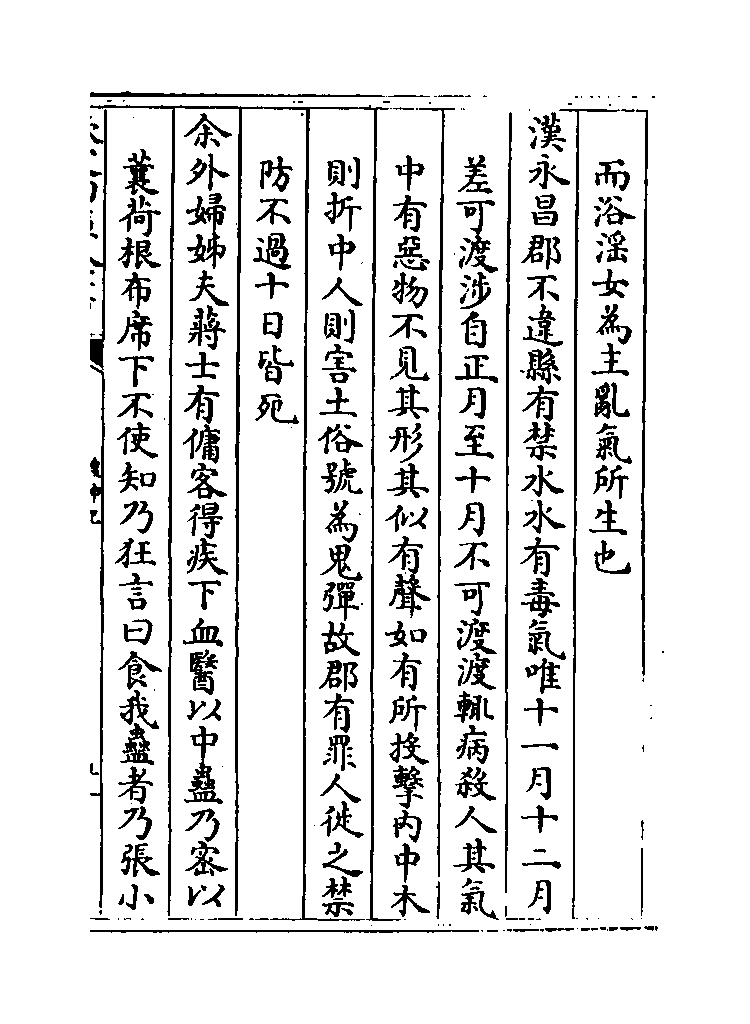 而浴淫女為主亂氣所生也
漢永昌郡不違縣有禁水水有毒氣唯十一月十二月
差可渡涉自正月至十月不可渡渡輙病殺人其氣
中有惡物不見其形其似有聲如有所投擊內中木
則折中人則害土俗號為鬼彈故郡有罪人徙之禁
防不過十日皆死
余外婦姊夫蔣士有傭客得疾下血醫以中蠱乃密以
蘘荷根布席下不使知乃狂言曰食我蠱者乃張小
搜神記